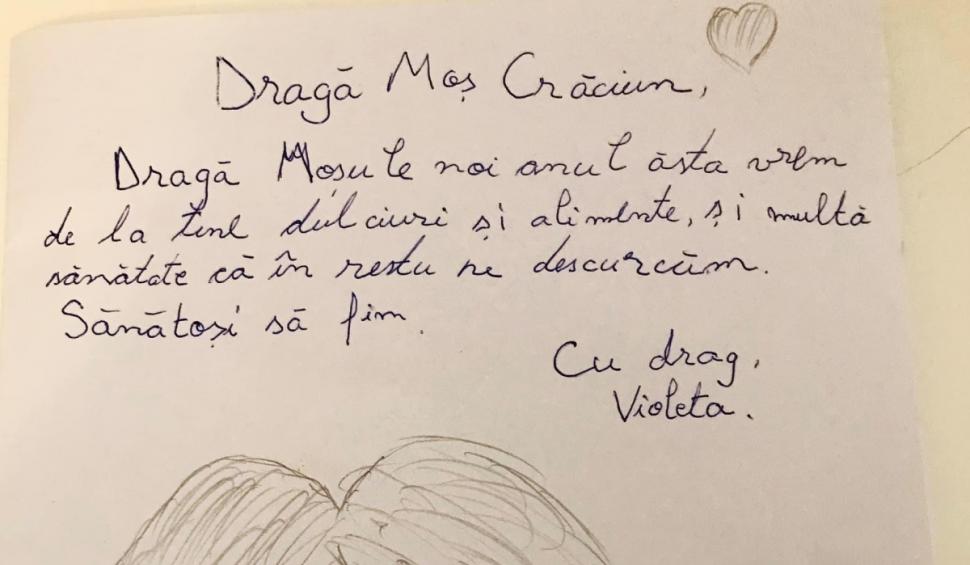 Dragă Moș Crăciun,
Dragă Moșule noi anul ăsta vrem
de la tine dulciuri și alimente, și multă
sănătate că în restu ne descurcăm.
Sănătoși să fim.
Cu drag,
Violeta.